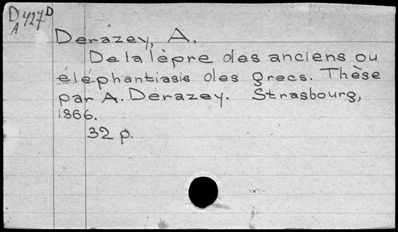 D 427 D
A
Derazey, A.
De la lèpre des anciens ou
éléphantiasis des grecs. Thèse
par A. Derazey. Strasbourg,
1866.
32 p.